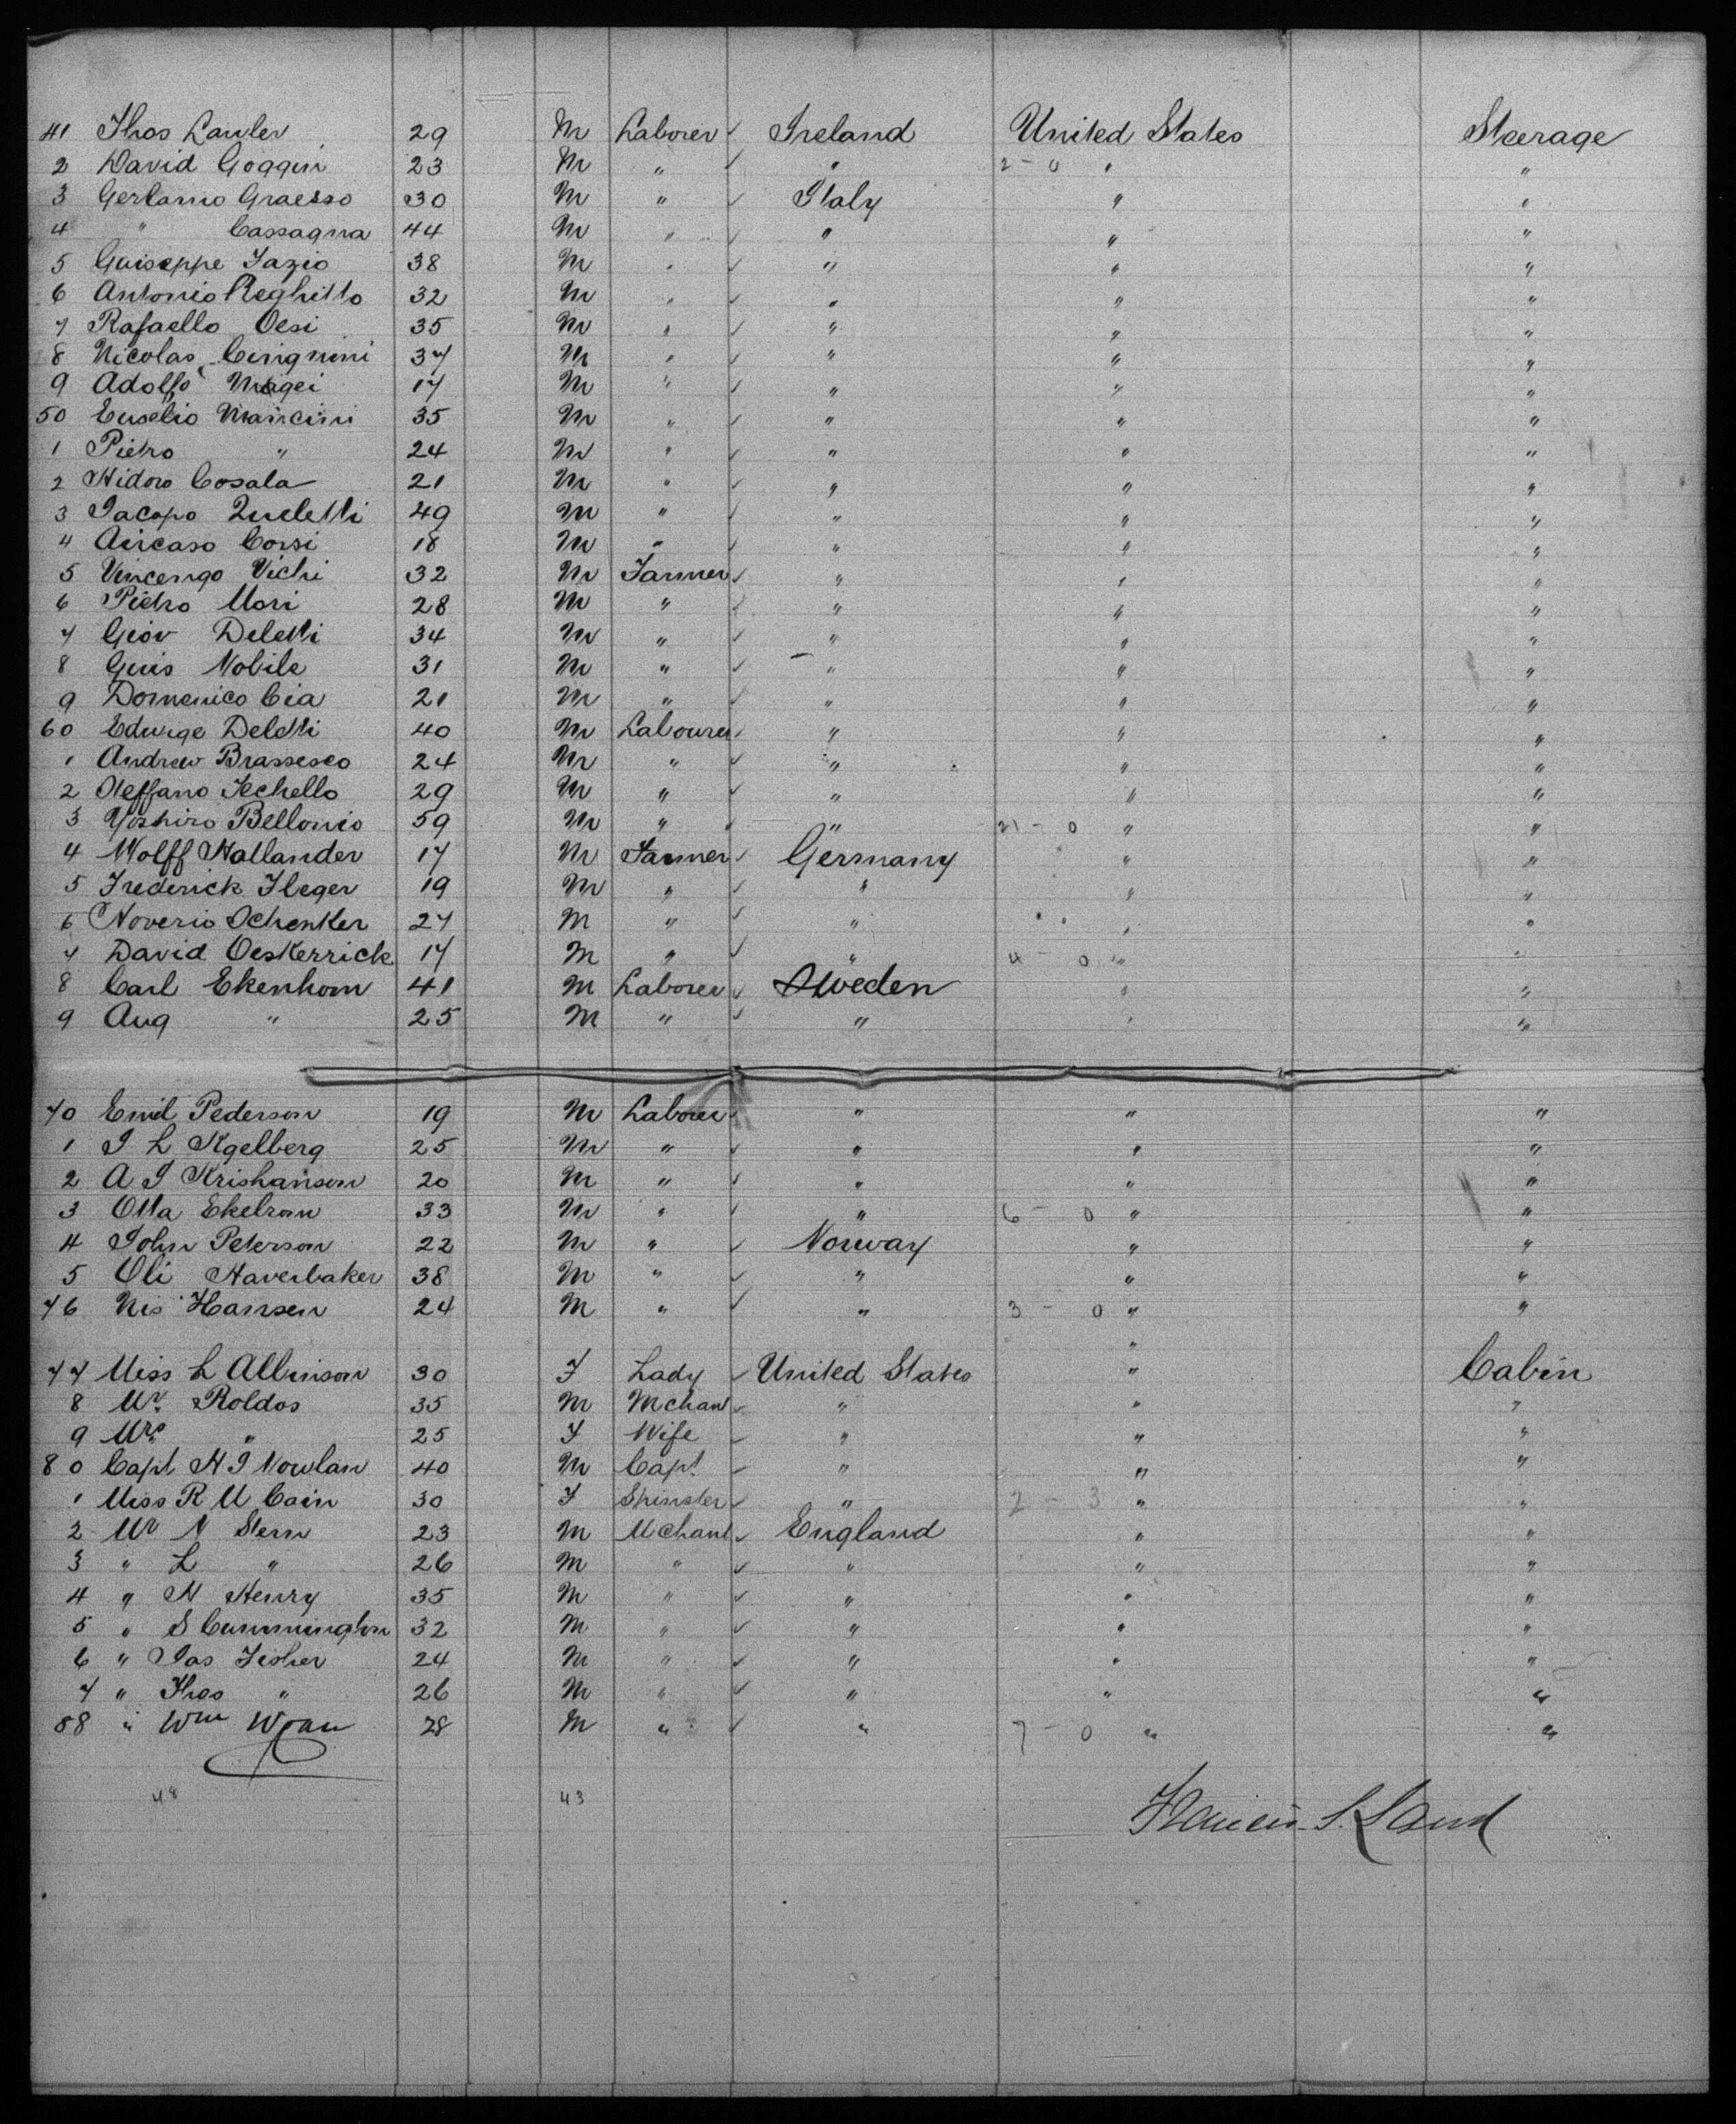 41 Thos Lawler 29 M Laborer ✓ Ireland United States Steerage
2 David Goggin 23 M " ✓ " 2 - 0 " "
3 Gerlamo Graesso 30 M " ✓ Italy " "
4 " Cassagna 44 M " ✓ " " "
5 Guiseppe Fazio 38 M " ✓ " " "
6 Antonio Reghitto 32 M " ✓ " " "
7 Rafaello Oesi 35 M " ✓ " " "
8 Nicolas Cirignini 37 M " ✓ " " "
9 Adolfo Magei 17 M " ✓ " " "
50 Euselio Mancini 35 M " ✓ " " "
1 Pietro " 24 M " ✓ " " "
2 Hidoro Cosala 21 M " ✓ " " "
3 Jacopo Queletti 49 M " ✓ " " "
4 Aircaso Corsi 18 M " ✓ " " "
5 Vincengo Vichi 32 M Farmer ✓ " " "
6 Pietro Mori 28 M " ✓ " " "
7 Giov Deletti 34 M " ✓ " " "
8 Guis Nobile 31 M " ✓ " " "
9 Domenico Cia 21 M " ✓ " " "
60 Edwige Deletti 40 M Labourer ✓ " " "
1 Andrew Brassesco 24 M " ✓ " " "
2 Steffano Fechello 29 M " ✓ " " "
3 Yoshiro Bellonio 59 M " ✓ " 21 - 0 " "
4 Wolff Hallander 17 M Farmer ✓ Germany " "
5 Frederick Fleger 19 M " ✓ " " "
6 Noverio Schenker 27 M " ✓ " " "
7 David Oeskerrick 17 M " ✓ " 4 - 0 " "
8 Carl Ekenhom 41 M Laborer ✓ Sweden " "
9 Aug " 25 M " ✓ " " "
70 Emil Pederson 19 M Laborer ✓ " " "
1 I L Kgelberg 25 M " ✓ " " "
2 A I Krishanson 20 M " ✓ " " "
3 Otta Ekelrom 33 M " ✓ " 6 - 0 " "
4 John Peterson 22 M " ✓ Norway " "
5 Oli Haverbaker 38 M " ✓ " " "
76 Nis Hansen 24 M " ✓ " 3 - 0 " "
"
77 Miss L Allinson 30 F Lady ✓ United States " Cabin
8 Mr. Roldos 35 M Mchant ✓ " " "
9 Mrs " 25 F Wife ✓ " " "
80 Capt H I Nowlan 40 M Capt. ✓ " " "
1 Miss R M Cain 30 F Spinster ✓ " 2 - 3 " "
2 Mr N Stern 23 M Mchant ✓ England " "
3 " L " 26 M " ✓ " " "
4 " N Henry 35 M " ✓ " " "
5 " S Cunnington 32 M " ✓ " " "
6 " Jas Fisher 24 M " ✓ " " "
7 " Thos " 26 M " ✓ " " "
88 " Wm 28 M " ✓ " 7 - 0 " "
48 43
Francis S. Land